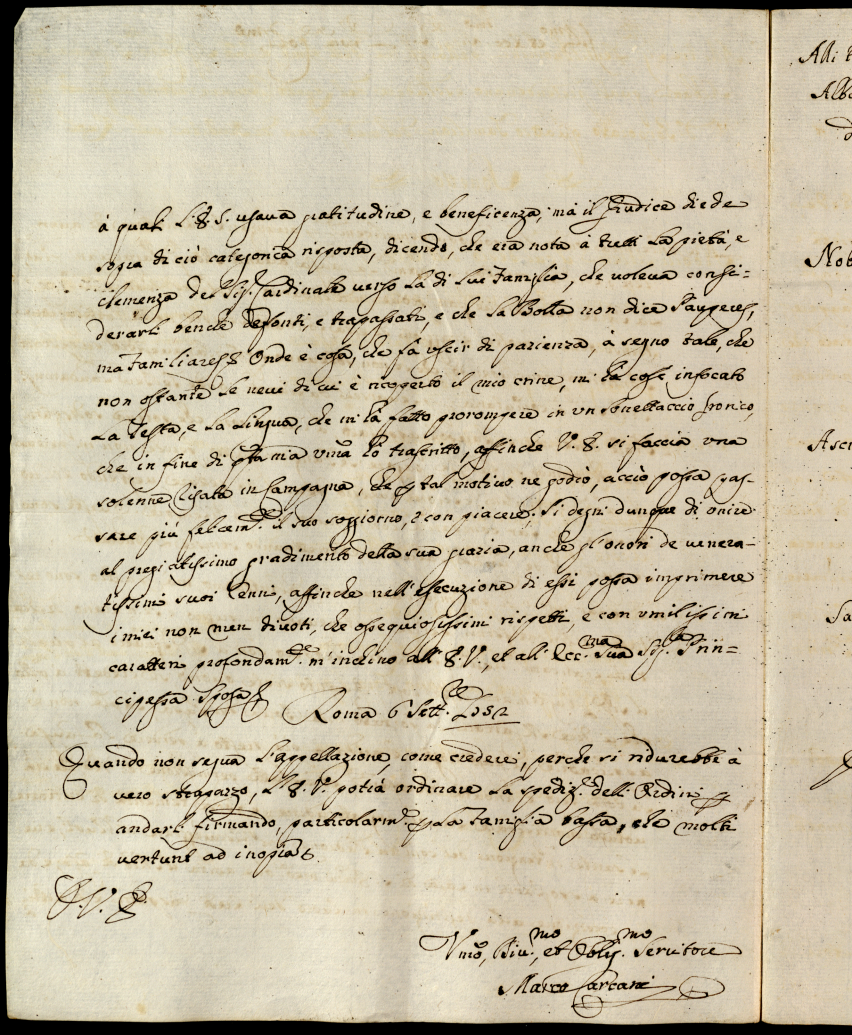 à quali L'E. S. usava gratitudine, e beneficenza; mà il Giudice diede
sopra di ciò categorica risposta, dicendo, che era nota à tutti la pietà, e
clemenza del Sig. Cardinale verso la di lui Famiglia, che voleva consi=
derarli benche defonti, e trapassati, e che la Bolla non dice Pauperes,
ma Familiares. Onde è cosa, che fà uscir di pazienza, à segno tale, che
non ostante le nevi di cui è ricoperto il mio crine, mi hà cosi infocato
la Testa, e la Lingua, che mi hà fatto prorompere in un sonettaccio Ironico,
che in fine di pñta mia umã hò trascritto, affinche V. E. si faccia una
solenne risata in Campagna, che p tal motivo ne godrò, acciò possa pas=
sare più felicem.te il suo soggiorno, e con piacere; Si degni dunque di unire
al pregiatissimo gradimento della sua grazia, anche gl'onori de venera=
tissimi suoi Cenni, affinche nell'esecuzione di essi possa imprimere
i miei non men divoti, che ossequiosissimi rispetti, e con umilissimi
caratteri profondam.te m'inchino all'E. V., et all'Ecc.ma Sua Sig.ra Prin=
cipessa Sposa
Roma 6 Sett.re 1752
Quando non segua l'appellazione, come crederei, perche si ridurebbe à
vero strapazzo, L'E. V. potrà ordinare la spediz.e dell'Ordini p
andarli firmando, particolarm.te p la Famiglia bassa, che molti
vertunt ad inopia
D. V. E.
Umõ, Div.mo, et Oblig.mo Servitore
Marco Carcani
Alli
Alb
d
Nob
Asc
Sa